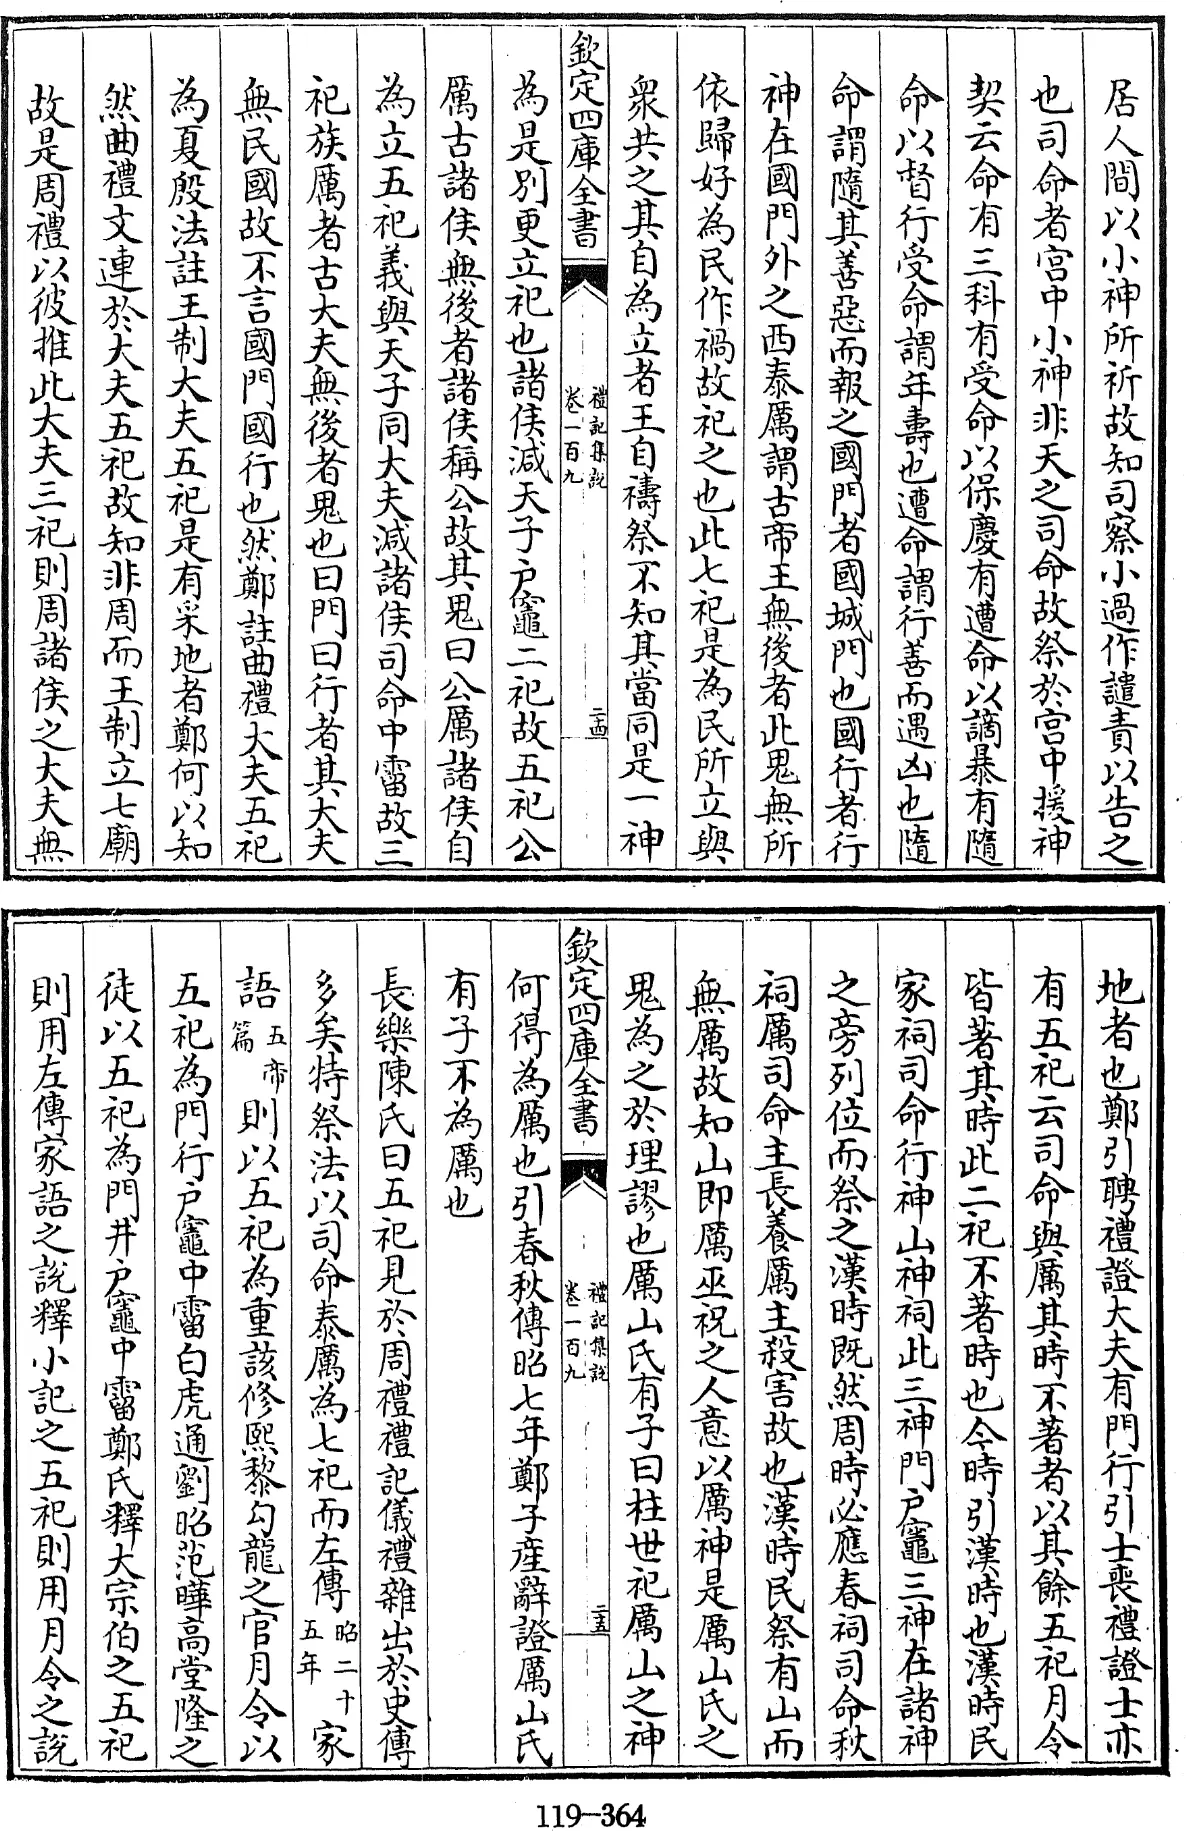 居人間以小神所祈故知司察小過作譴責以告之
也司命者宫中小神非天之司命故祭於宫中援神
契云命有三科有受命以保慶有遭命以謫暴有隨
命以督行受命謂年壽也遭命謂行善而遇凶也隨
命謂隨其善惡而報之國門者國城門也國行者行
神在國門外之西泰厲謂古帝王無後者此鬼無所
依歸好為民作禍故祀之也此七祀是為民所立與
衆共之其自為立者王自禱祭不知其當同是一神
欽定四庫全書
禮記集說
卷一百九
二十四
為是別更立祀也諸侯減天子户竈二祀故五祀公
厲古諸侯無後者諸侯稱公故其鬼曰公厲諸侯自
為立五祀義與天子同大夫減諸侯司命中霤故三
祀族厲者古大夫無後者鬼也曰門曰行者其大夫
無民國故不言國門國行也然鄭註曲禮大夫五祀
為夏殷法註王制大夫五祀是有采地者鄭何以知
然曲禮文連於大夫五祀故知非周而王制立七廟
故是周禮以彼推此大夫三祀則周諸侯之大夫無
地者也鄭引聘禮證大夫有門行引士喪禮證士亦
有五祀云司命與厲其時不著者以其餘五祀月令
皆著其時此二祀不著時也今時引漢時也漢時民
家祠司命行神山神祠此三神門户竈三神在諸神
之旁列位而祭之漢時既然周時必應春祠司命秋
祠厲司命主長養厲主殺害故也漢時民祭有山而
無厲故知山即厲巫祝之人意以厲神是厲山氏之
鬼為之於理謬也厲山氏有子曰柱世祀厲山之神
欽定四庫全書
禮記集說
卷一百九
二十五
何得為厲也引春秋傳昭七年鄭子產辭證厲山氏
有子不為厲也
長樂陳氏曰五祀見於周禮禮記儀禮雜出於史傳
多矣特祭法以司命泰厲為七祀而左傳昭二十五年家
語五帝篇則以五祀為重該修熙黎勾龍之官月令以
五祀為門行户竈中霤白虎通劉昭范曄高堂隆之
徒以五祀為門井户竈中霤鄭氏釋大宗伯之五祀
則用左傳家語之說釋小記之五祀則用月令之說
119-364